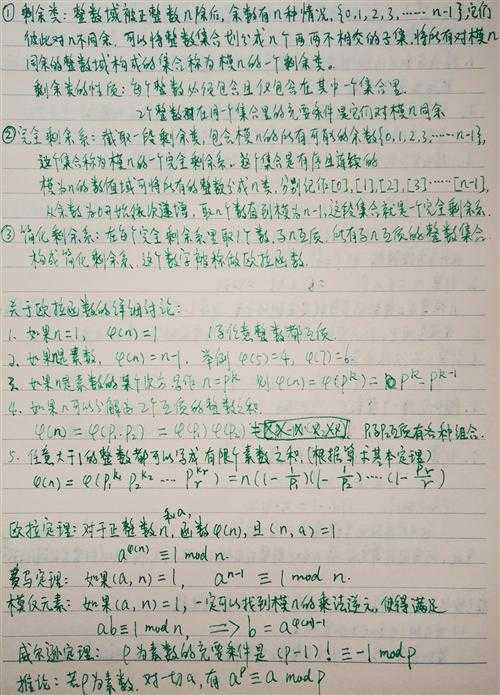 ① 剩余类：整数域被正整数n除后，余数有n种情况，{0,1,2,3,…… n-1}，它们
彼此对n不同余，可以将整数集合划分成n个两两不相交的子集，将所有对模n
同余的整数域构成的集合称为模n的一个剩余类。
剩余类的性质：每个整数必仅包含且仅包含在其中一个集合里。
2个整数在同一个集合里的充要条件是它们对模n同余
② 完全剩余系：截取一段剩余类，包含模n的所有可取的余数{0,1,2,3,……n-1}，
这个集合称为模n的一个完全剩余系。这个集合是有序且连续的
模为n的数值域可将所有的整数分成n类，分别记作[0],[1],[2],[3]……[n-1]，
从余数为0开始依次递增，取n个数直到模为n-1，这段集合就是一个完全剩余系。
③ 简化剩余系：在每个完全剩余系里取1个数，与n互质，所有与n互质的整数集合
构成简化剩余系，这个数字被称做欧拉函数.
关于欧拉函数的详细讨论：
1. 如果n=1, φ(n)=1 1与任意整数都互质
2. 如果n是素数, φ(n)=n-1. 举例 φ(5)=4, φ(7)=6
3. 如果n是素数的某个次方 写作 n=p^k 则 φ(n)=φ(p^k)= p^k-p^{k-1}
4. 如果n可以分解为2个互质的整数之积.
φ(n)=φ(P₁·P₂) =φ(P₁)φ(P₂) P与P₂互质有各种组合.
5. 任意大于1的整数都可以写成有限个素数之积.(根据算术基本定理)
φ(n)=φ(P₁^{k₁} P₂^{k₂} …. P_r^{k_r})=n(1-1/P₁)(1-1/P₂)….(1-1/P_r)
欧拉定理：对于正整数n和a, 函数φ(n), 且(n,a)=1
a^{φ(n)} ≡ 1 mod n.
费马定理：如果(a,n)=1, a^{n-1} ≡ 1 mod n.
模反元素：如果(a,n)=1, 一定可以找到模n的乘法逆元, 使得满足
ab≡1 mod n, ⟹ b=a^{φ(n)-1}
威尔逊定理：P为素数的充要条件是 (P-1)! ≡ -1 mod p
推论：若P为素数. 对一切a, 有 a^p ≡ a mod p